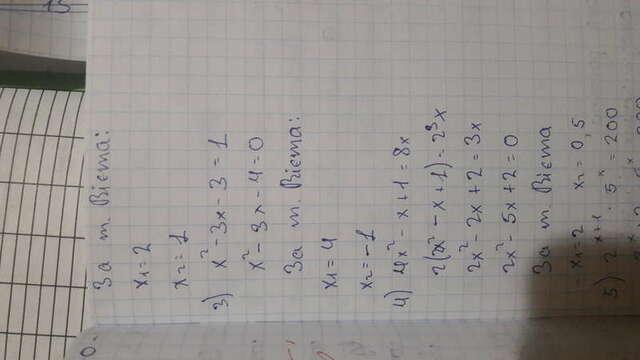 За т. Вієта:
x₁ = 2
x₂ = 1
3) x² - 3x - 3 = 1
x² - 3x - 4 = 0
За т. Вієта:
x₁ = 4
x₂ = -1
4) 4x² - x + 1 = 8x
2(x² - x + 1) = 2³x
2x² - 2x + 2 = 3x
2x² - 5x + 2 = 0
За т. Вієта
x₁ = 2 x₂ = 0,5
5) 2ˣ⁺¹ · 5ˣ = 200